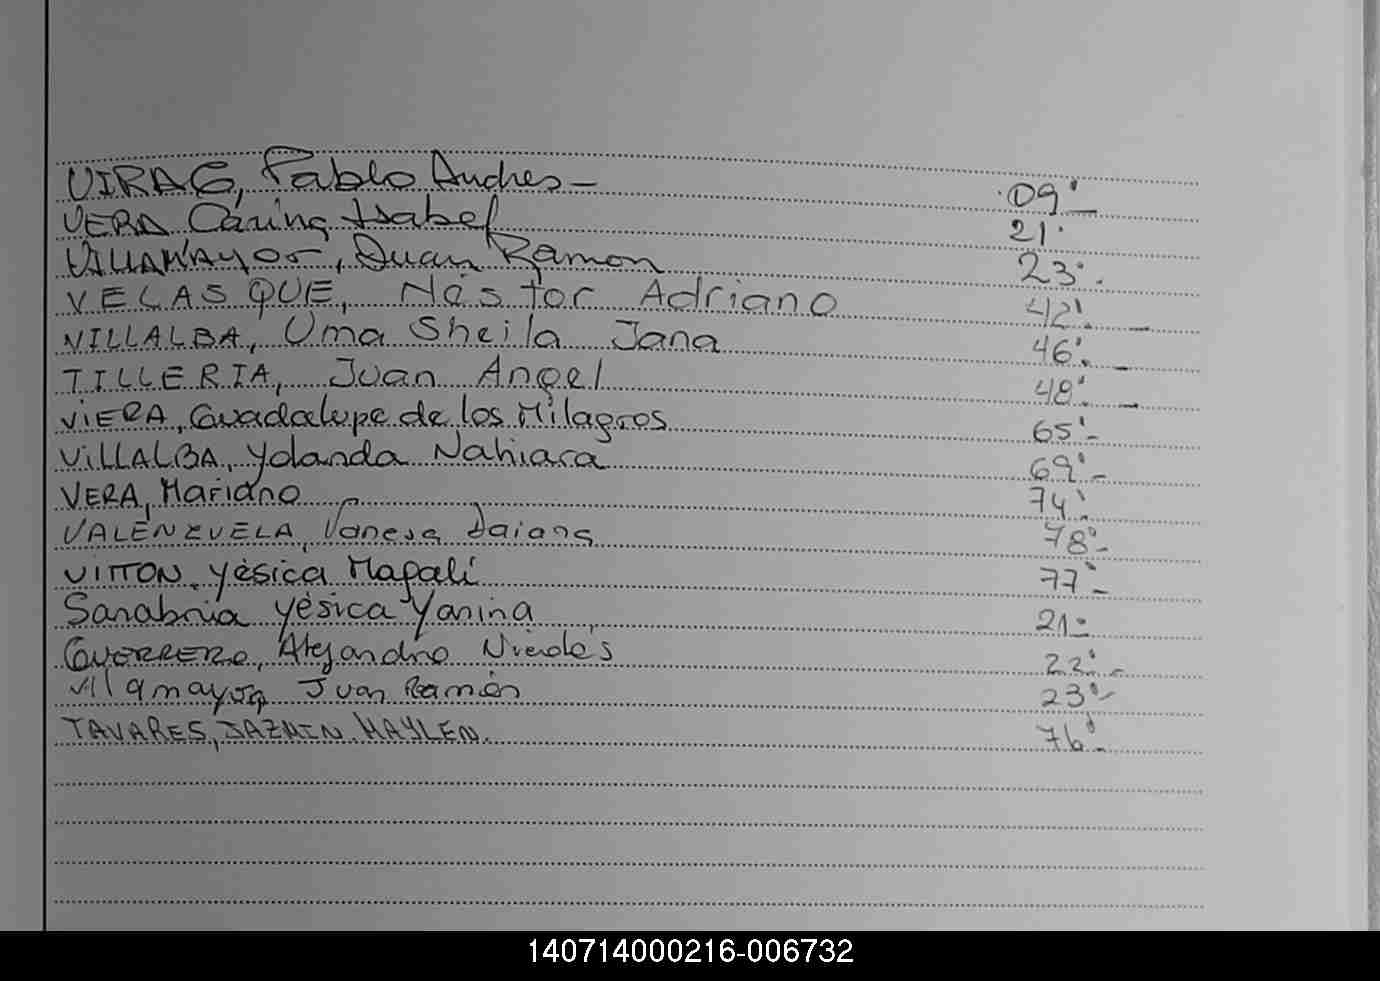 VIRAG, Pablo Andres - 09'-
VERA Carina Isabel 21'
VILLAMAYOR, Juan Ramon 23'.
VELASQUE, Néstor Adriano 42'. -
VILLALBA, Uma Sheila Jana 46'. -
TILLERIA, Juan Angel 48'. -
VIERA, Guadalupe de los Milagros 65'-
VILLALBA, Yolanda Nahiara 69'-
VERA, Mariano 74'.
VALENZUELA, Vanesa Daiana 78'-
VITTON, Yésica Magalí 77'-
Sanabria Yésica Yanina 21'-
GUERRERO, Alejandro Nicolás 22'.-
Villamayor Juan Ramón 23'-
TAVARES, JAZMIN MAYLEN. 76'-
140714000216-006732